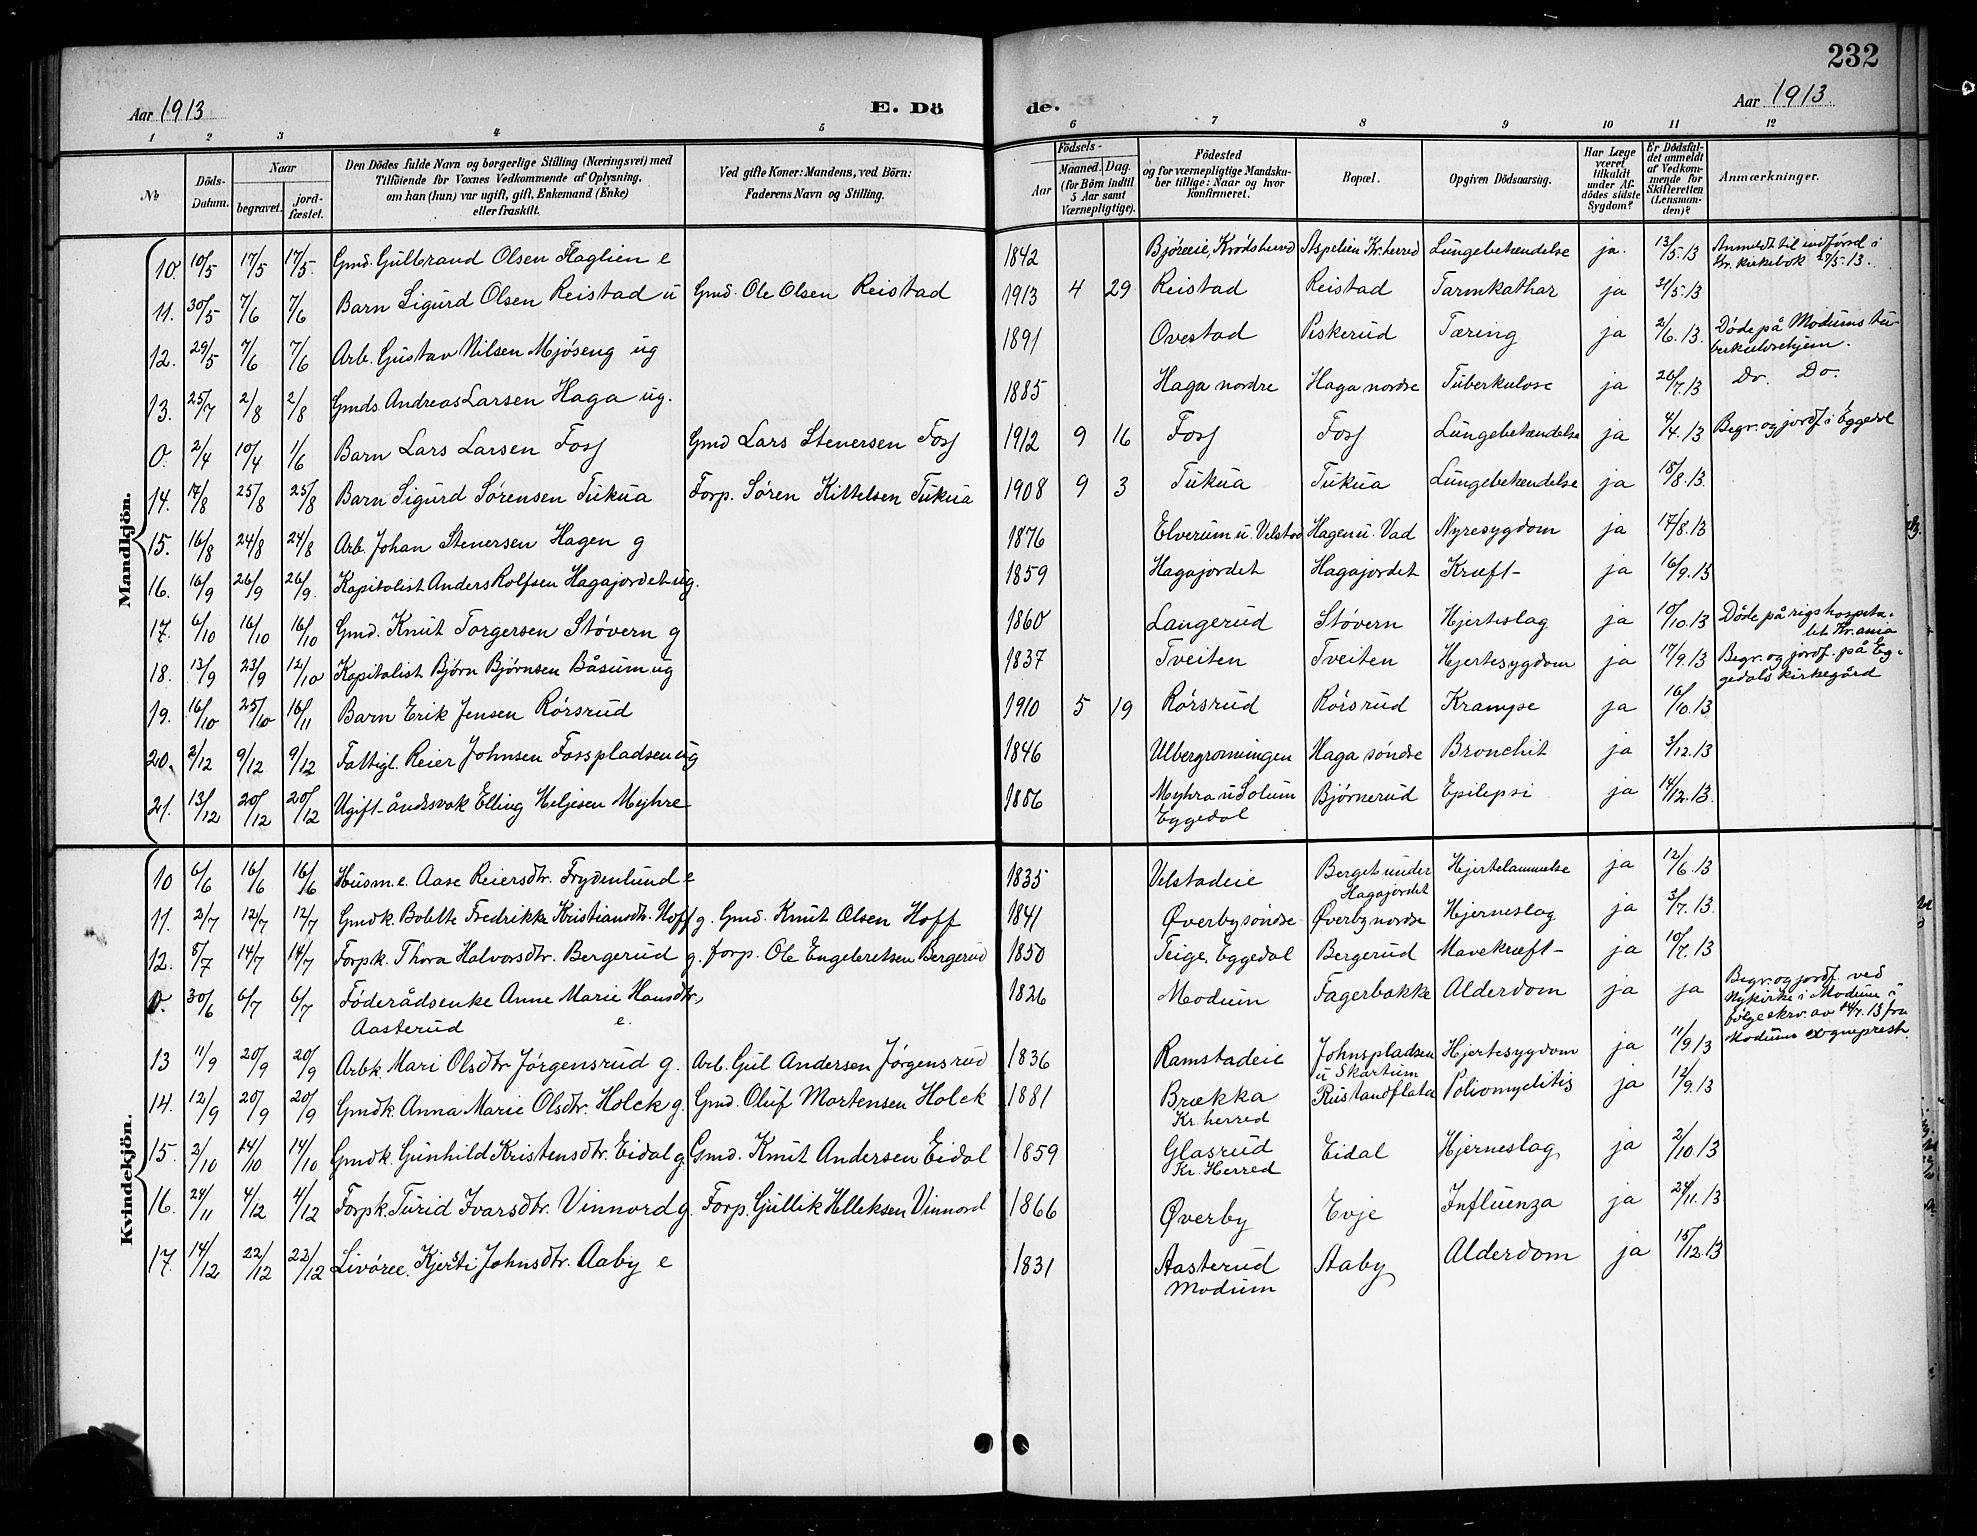 232
Aar 1913 E. Dö
de. Aar 1913.
1 2 3 4 5
6 7 8 9 10 11 12
№ Döds-Datum. Naar begravet. jord-fæstet. Den Dödes fulde Navn og borgerlige Stilling (Næringsvei) med Tilföiende for Voxnes Vedkommende af Oplysning, om han (hun) var ugift, gift, Enkemand (Enke) eller fraskilt. Ved gifte Koner: Mandens, ved Börn: Faderens Navn og Stilling.
Födsels- Aar Maaned. Dag. (for Börn indtil 5 Aar samt Værnepligtige). Födested og for værnepligtige Mandska-ber tillige: Naar og hvor konfirmeret. Bopæl. Opgiven Dödsaarsag. Har Læge været tilkaldt under Af-dödes sidste Sygdom? Er Dödsfal-det anmeldt af Vedkom-mende for Skifteretten (Lensman-den)? Anmærkninger.
Mandkjön.
10 10/5 17/5 17/5 Gmd. Gulbrand Olsen Haglien e 1842 Bjøreeie, Krødsherred Aspelien Kr.herred Lungebetændelse ja. 13/5.13 Anmeldt til indførsel i Kr. kirkebok 27/5.13.
11. 30/5 7/6 7/6 Barn Sigurd Olsen Reistad u Gmd. Ole Olsen Reistad 1913 4 29 Reistad Reistad Tarmkathar ja 31/5.13
12. 29/5 7/6 7/6 Arb. Gustav Nilsen Mjøseng ug 1891 Ovestad Piskerud Tæring ja 2/6.13. Døde på Modums tu-berkulosehjem.
13. 25/7 2/8 2/8 Gmds. Andreas Larsen Haga ug. 1885 Haga nordre Haga nordre Tuberkulose ja 26/7.13 Do. Do.
0. 2/4 10/4 1/6 Barn Lars Larsen Foss Gmd Lars Stenersen Foss 1912 9 16 Foss Foss Lungebetændelse ja 4/4.13 Begr. og jordf. i Eggedal
14. 17/8 25/8 25/8 Barn Sigurd Sørensen Tukua Forp. Søren Kittelsen Tukua 1908 9 3 Tukua Tukua Lungebetændelse ja 18/8.13.
15. 16/8 24/8 24/8 Arb. Johan Stenersen Hagen g 1876 Elverum u. Velstad Hagen u. Vad Nyresygdom ja 17/8.13
16. 16/9 26/9 26/9. Kapitalist Anders Rolfsen Hagajordet ug. 1859 Hagajordet Hagajordet Kræft ja 16/9.13
17. 6/10 16/10 16/10 Gmd. Knut Torgersen Støvern g 1860 Langerud Støvern Hjerteslag ja 10/10.13 Døde på rigshospita-let Kr.ania
18. 13/9 23/9 12/10 Kapitalist Bjørn Bjørnsen Båsum ug 1837 Tveiten Tveiten Hjertesygdom ja 17/9.13 Begr. og jordf. på Eg-gedals kirkegård
19. 16/10 25/10 16/11 Barn Erik Jensen Rørsrud 1910 5 19 Rørsrud Rørsrud Krampe ja 16/10.13
20. 2/12 9/12 9/12 Fattigl. Reier Johnsen Fosspladsen ug 1846 Ulbergromningen Haga søndre Bronchit ja 3/12.13
21. 13/12 20/12 20/12 Ugift åndsvak Elling Heljesen Myhre 1886 Myhra u Solum Eggedal Bjørnerud Epilepsi ja 14/12.13.
Kvindekjön.
10 6/6 16/6 16/6 Husm.e. Aase Reiersdtr. Frydenlund e 1835 Velstadeie Berget under Hagajordet Hjertelammelse ja 12/6.13
11. 2/7 12/7 12/7 Gmdk. Bolette Fredrikke Kristiansdtr. Hoff g. Gmd. Knut Olsen Hoff 1841 Øverby søndre Øverby nordre Hjerneslag ja 3/7.13.
12. 8/7 14/7 14/7 Forpk. Thora Halvorsdtr. Bergerud g. forp. Ole Engebretsen Bergerud 1850 Teige, Eggedal Bergerud Mavekræft ja 10/7.13
0. 30/6 6/7 6/7 Føderådsenke Anne Marie Hansdtr, Aasterud e. 1826 Modum Fagerbakke Alderdom ja ja Begr. og jordf. ved Nykirke i Modum i følge skrv. av 14/7.13 fra Modums sogneprest.
13 11/9 20/9 20/9 Arbk. Mari Olsdtr Jørgensrud g. Arb. Gul Andersen Jørgensrud 1836 Ramstadeie Johnspladsen u Skartum Hjertesygdom ja 11/9 13
14. 12/9 20/9 20/9 Gmdk. Anna Marie Olsdtr. Holck g. Gmd. Oluf Mortensen Holck 1881 Brækka Kr. herred Rustandflata Poliomyelitis ja 12/9.13
15. 2/10 14/10 14/10 Gmdk. Gunhild Kristensdtr. Eidal g. Gmd. Knut Andersen Eidal 1859 Glasrud Kr. Herred Eidal Hjerneslag ja 2/10.13
16. 24/11 4/12 4/12 Forpk. Turid Ivarsdtr. Vinnord g. Forp. Gullik Helleksen Vinnord 1866 Øverby Evje Influenza ja 24/11.13
17. 14/12 22/12 22/12 Livøree. Kjersti Johnsdtr. Aaby e 1831 Aasterud Modum Aaby Alderdom ja 15/12.13